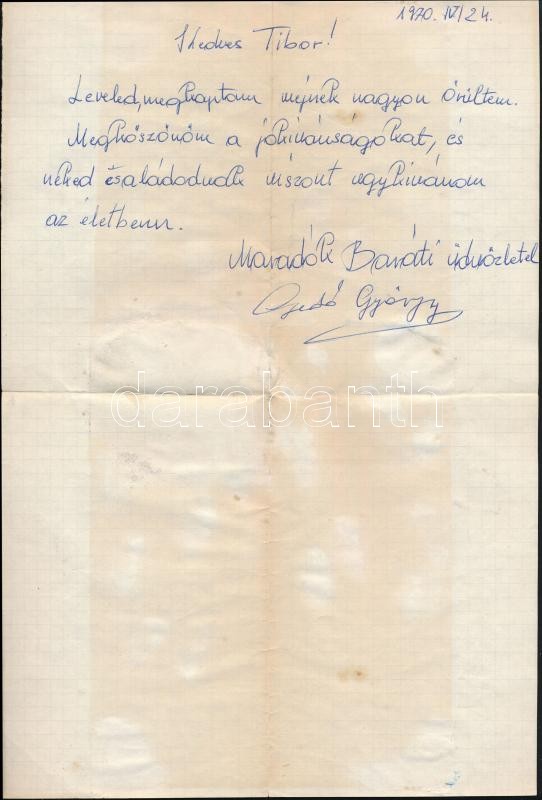 1970. IV/24.
Kedves Tibor!
Leveled, megkaptam mejnek nagyon örültem.
Megköszönöm a jókivánságokat, és
néked és családodnak viszont ugykivánom
az életbenn.
Maradók Baráti üdvözletel
Gedó György
darabanth